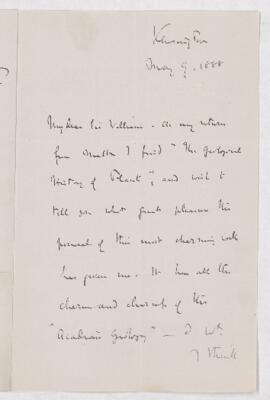 Kensington
May 9. 1888
My dear Sir William – On my return
from Malta I find "The Geological
History of Plants", and wish to
tell you what great pleasure the
perusal of this most charming work
has given me. It has all the
charm and of the
"Acadian Geology" –
I think